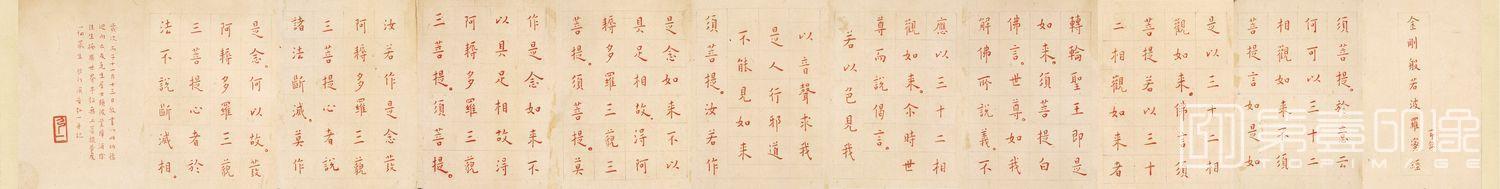 金剛般若波羅蜜經
須菩提。於意云
何可以三十二
相觀如來不須
菩提言如是如
是以三十二相
觀如來。佛言須
菩提若以三十
二相觀如來者
轉輪聖王即是
如來。須菩提白
佛言。世尊。如我
解佛所說義。不
應以三十二相
觀如來。尒時世
尊而說偈言。
若以色見我
以音聲求我
是人行邪道
不能見如來
須菩提。汝若作
是念如來不以
具足相故得阿
耨多羅三藐三
菩提。須菩提。莫
作是念如來不
以具足相故得
阿耨多羅三藐
三菩提。須菩提。
汝若作是念發
阿耨多羅三藐
三菩提心者說
諸法斷滅。莫作
是念。何以故。發
阿耨多羅三藐
三菩提心者於
法不說斷滅相。
歲次丙子十一月十三日敬書
TOPIMAGE